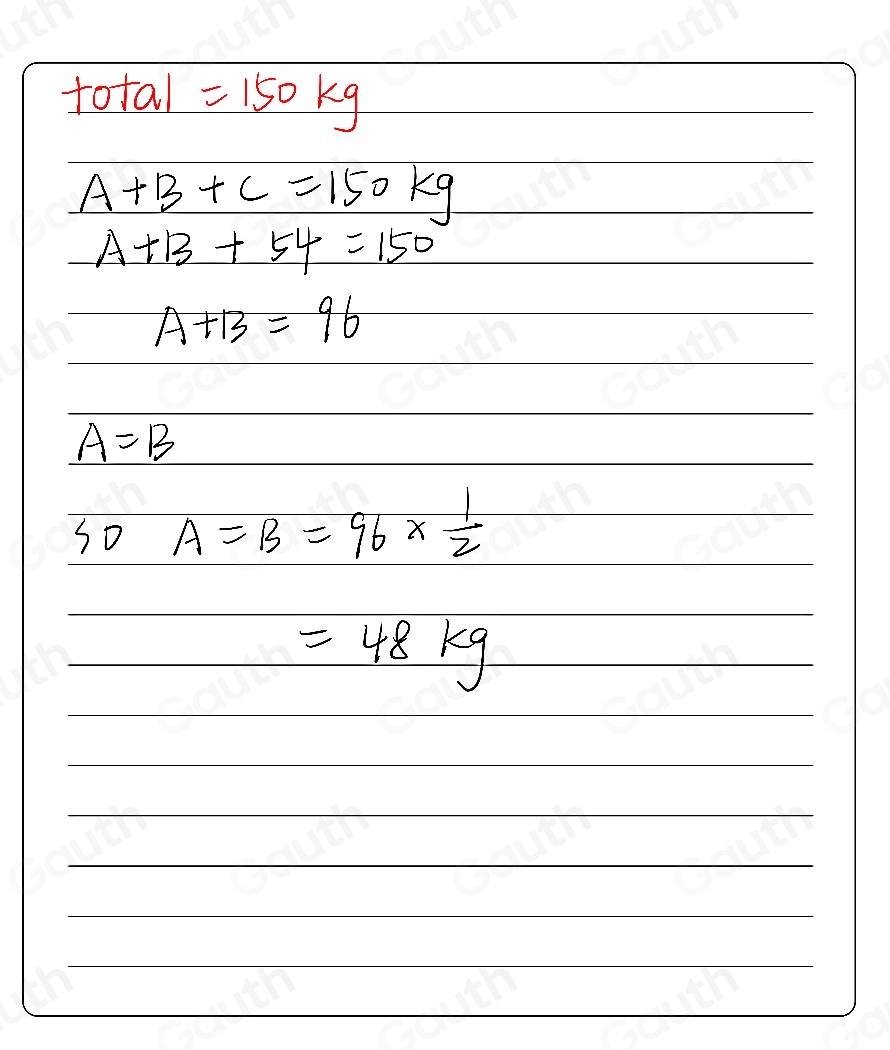 total = 150 kg
A+B+C=150 kg
A+B+54=150
A+B=96
A=B
so A=B=96×1/2
=48 kg